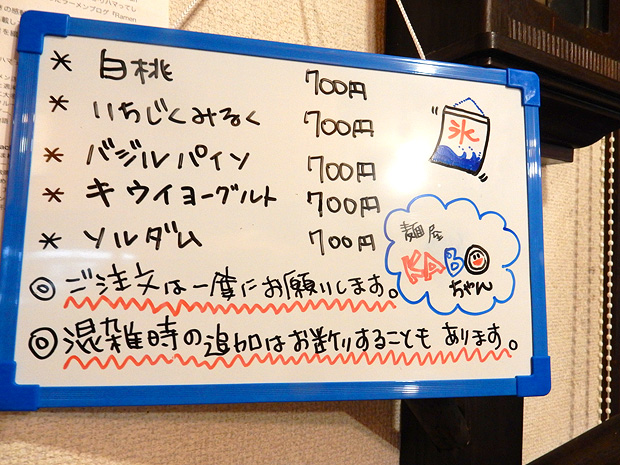 * 白桃 700円
* いちじくみるく 700円
* バジルパイン 700円
* キウイヨーグルト 700円
* ソルダム 700円
氷
麺屋
KABO
ちゃん
◎ ご注文は一度にお願いします。
◎ 混雑時の追加はお断りすることもあります。